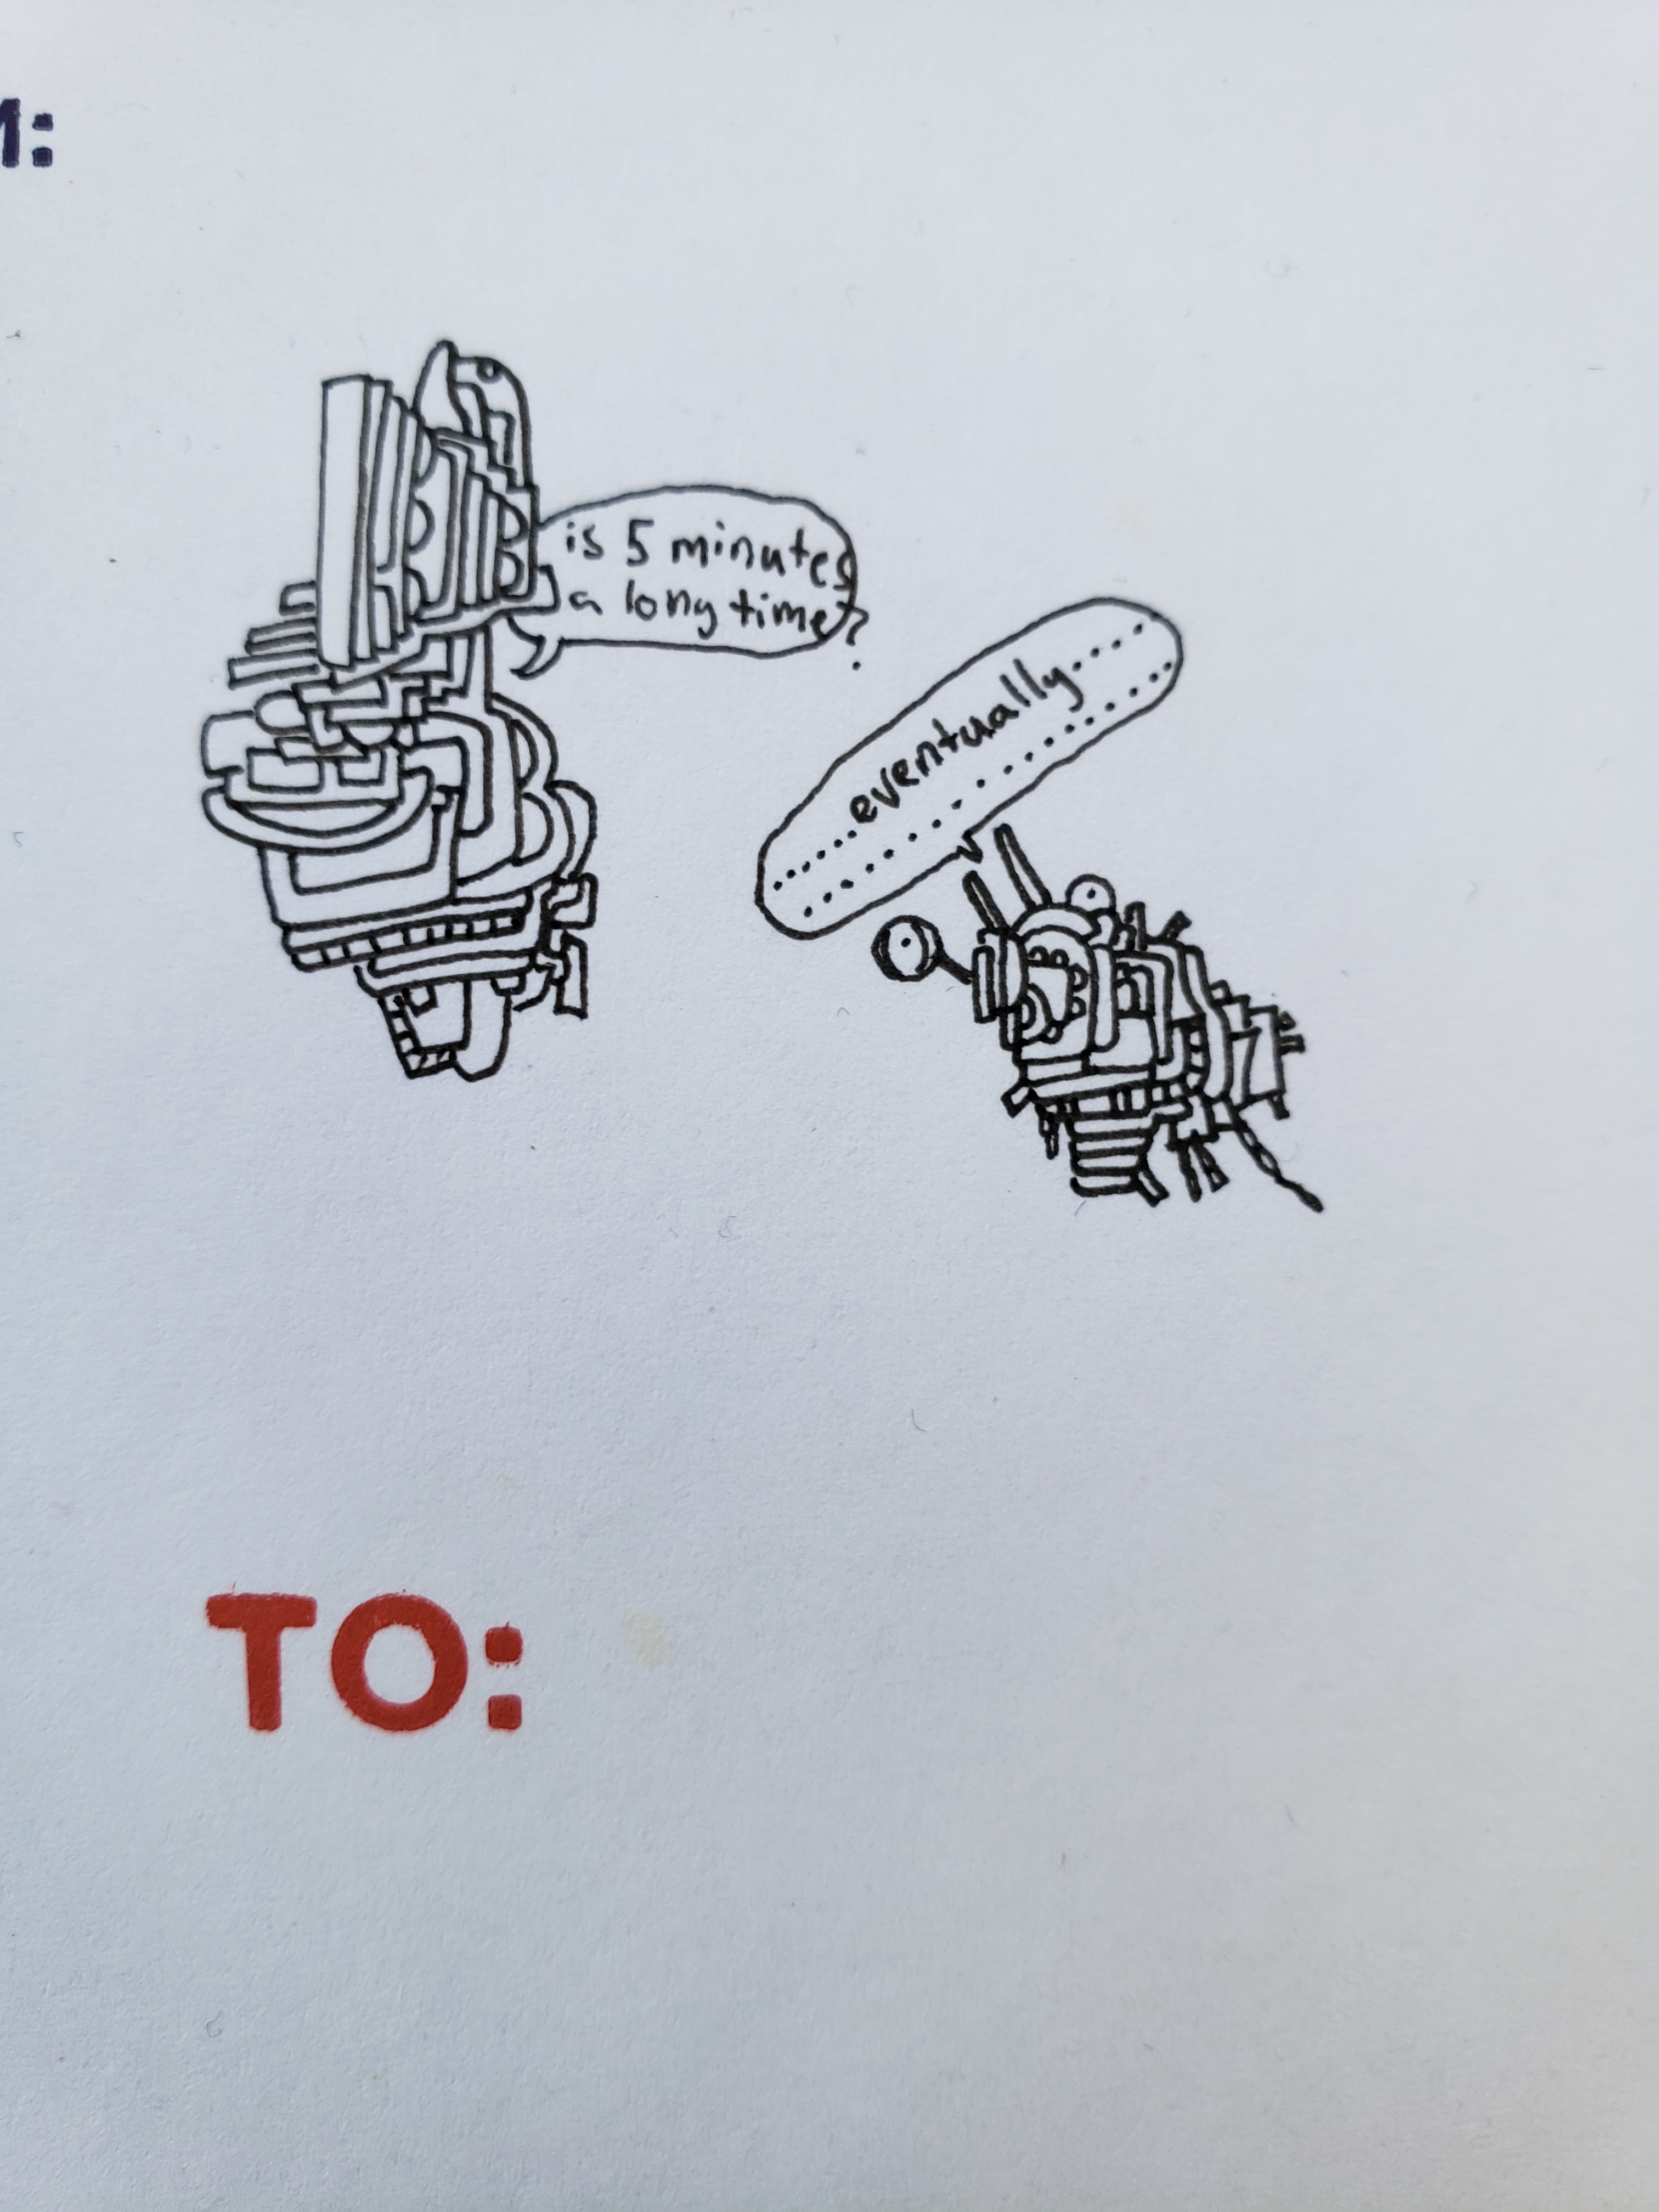 M:
is 5 minutes
a long time?
eventually
TO: